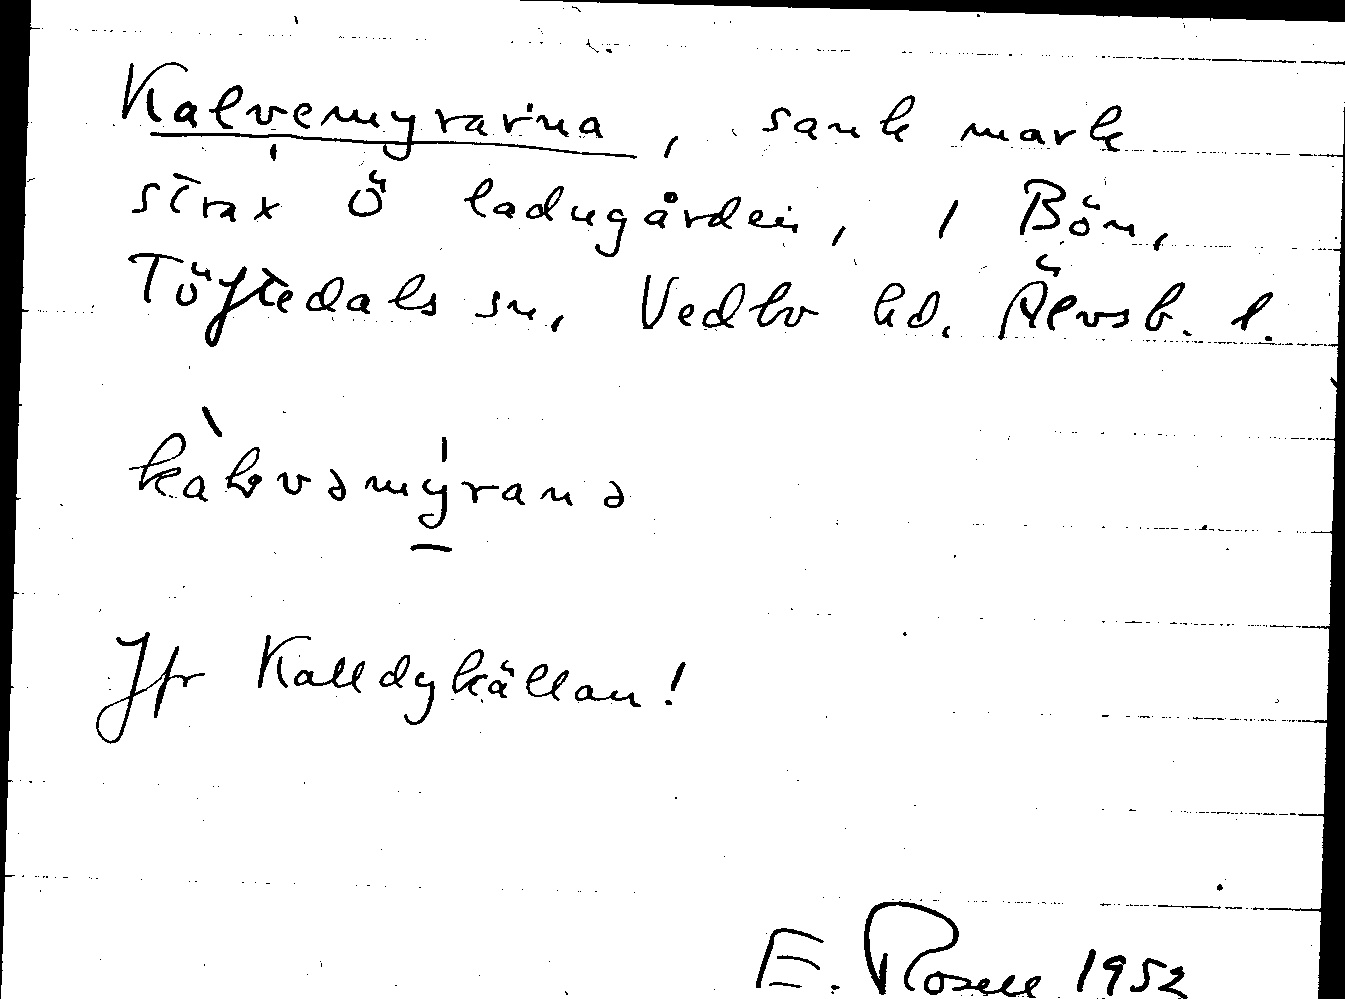 Kalvemyrarna, sank mark
strax Ö ladugården, i Bön,
Töftedals sn, Vedbo hd. Älvsb. l.
kàlvəmýranə
Jfr Kalldykällan!
E. Rosell 1952